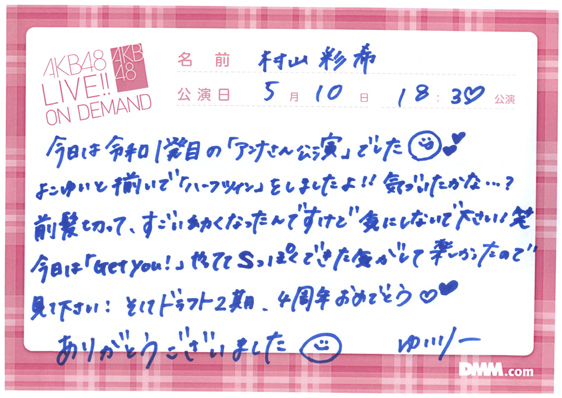 AKB48
LIVE!!
ON DEMAND
AKB
48
名前 村山彩希
公演日 5月10日 18:30公演
今日は令和1発目の「アンナさん公演」でした
よこゆいと揃いで「ハーフツイン」をしましたよ!! 気づいたかな…?
前髪を切って、すごい幼くなったんですけど気にしないで下さい!笑
今日は「Get you!」やっててSっぽくできた気がして楽しかったので
見て下さい! そしてドラフト2期、4周年おめでとう♡♥
ありがとうございました ゆいりー
DMM.com